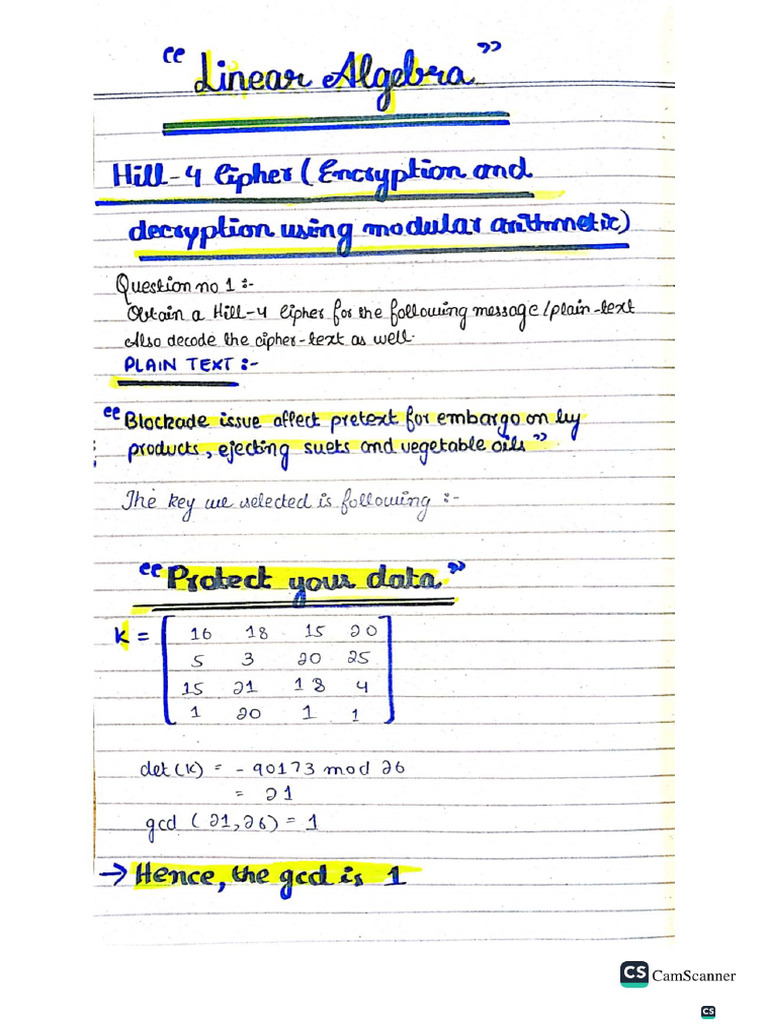 “Linear Algebra”
Hill-4 Cipher (Encryption and
decryption using modular arithmetic)
Question no 1:-
Obtain a Hill-4 Cipher for the following message/plain-text
Also decode the cipher-text as well.
PLAIN TEXT:-
“Blockade issue affect pretext for embargo on by
products, ejecting suets and vegetable oils”
The key we selected is following:-
“Protect your data”
K = [ 16 18 15 20
5 3 20 25
15 21 18 4
1 20 1 1 ]
det(K) = - 90173 mod 26
= 21
gcd (21,26) = 1
→ Hence, the gcd is 1
CS CamScanner
CS